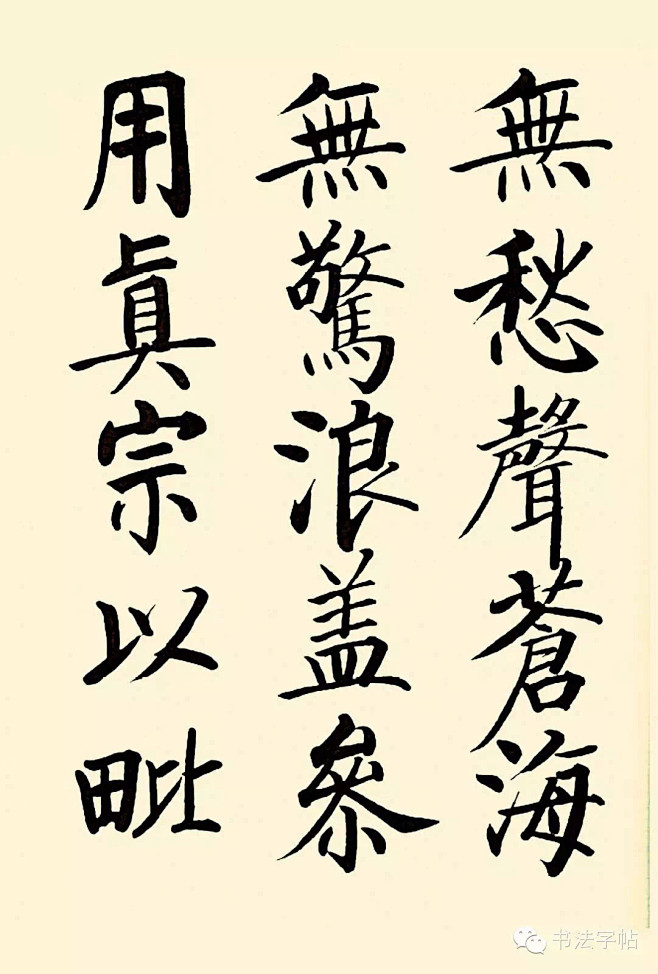 無愁聲蒼海
無驚浪盖叅
用真宗以毗
书法字帖